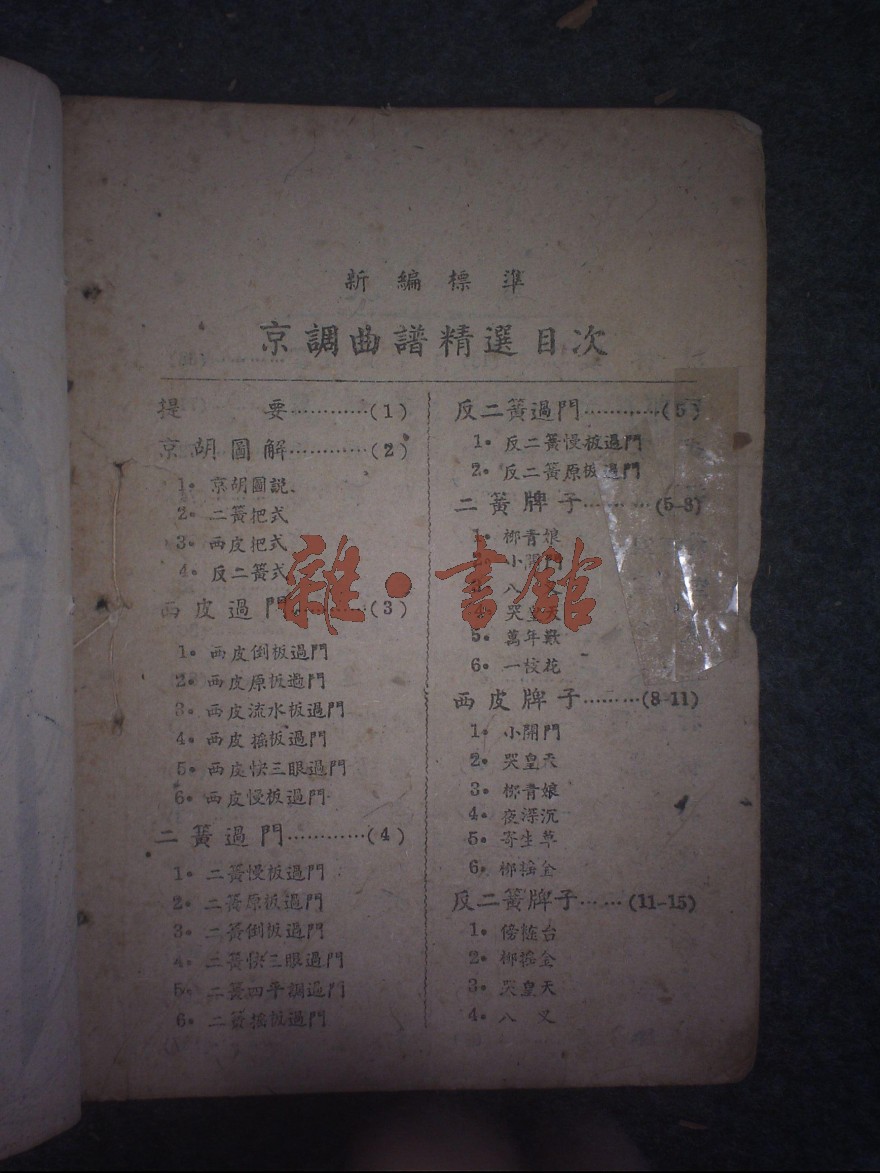 新編標準
京調曲譜精選目次
提要…………(1)
京胡圖解…………(2)
1. 京胡圖説
2. 二簧把式
3. 西皮把式
4. 反二簧式
西皮過門…………(3)
1. 西皮倒板過門
2. 西皮原板過門
3. 西皮流水板過門
4. 西皮搖板過門
5. 西皮快三眼過門
6. 西皮慢板過門
二簧過門…………(4)
1. 二簧慢板過門
2. 二簧原板過門
3. 二簧倒板過門
4. 二簧快三眼過門
5. 二簧四平調過門
6. 二簧搖板過門
反二簧過門…………(5)
1. 反二簧慢板過門
2. 反二簧原板過門
二簧牌子………(5-8)
1. 柳青娘
小開門
八
哭皇天
5. 萬年歡
6. 一枝花
西皮牌子………(8-11)
1. 小開門
2. 哭皇天
3. 柳青娘
4. 夜深沉
5. 寄生草
6. 柳搖金
反二簧牌子……(11-15)
1. 傍妝台
2. 柳搖金
3. 哭皇天
4. 八叉
雜·書館